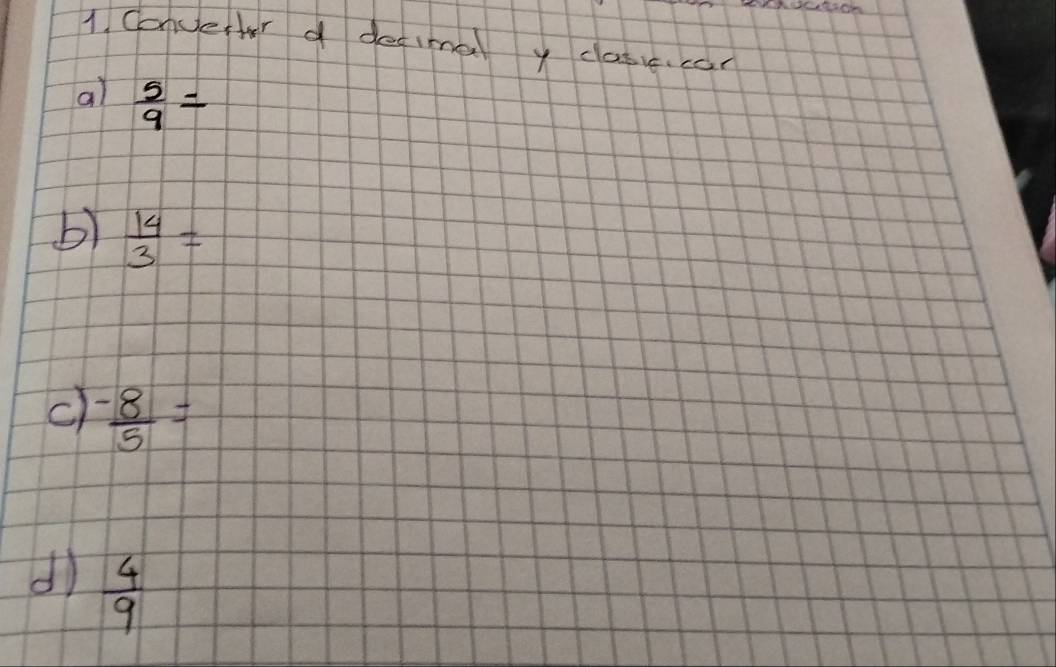 1. Convertir a decimal y clasificar
a) 5/9 =
b) 14/3 =
c) -8/5 =
d) 4/9